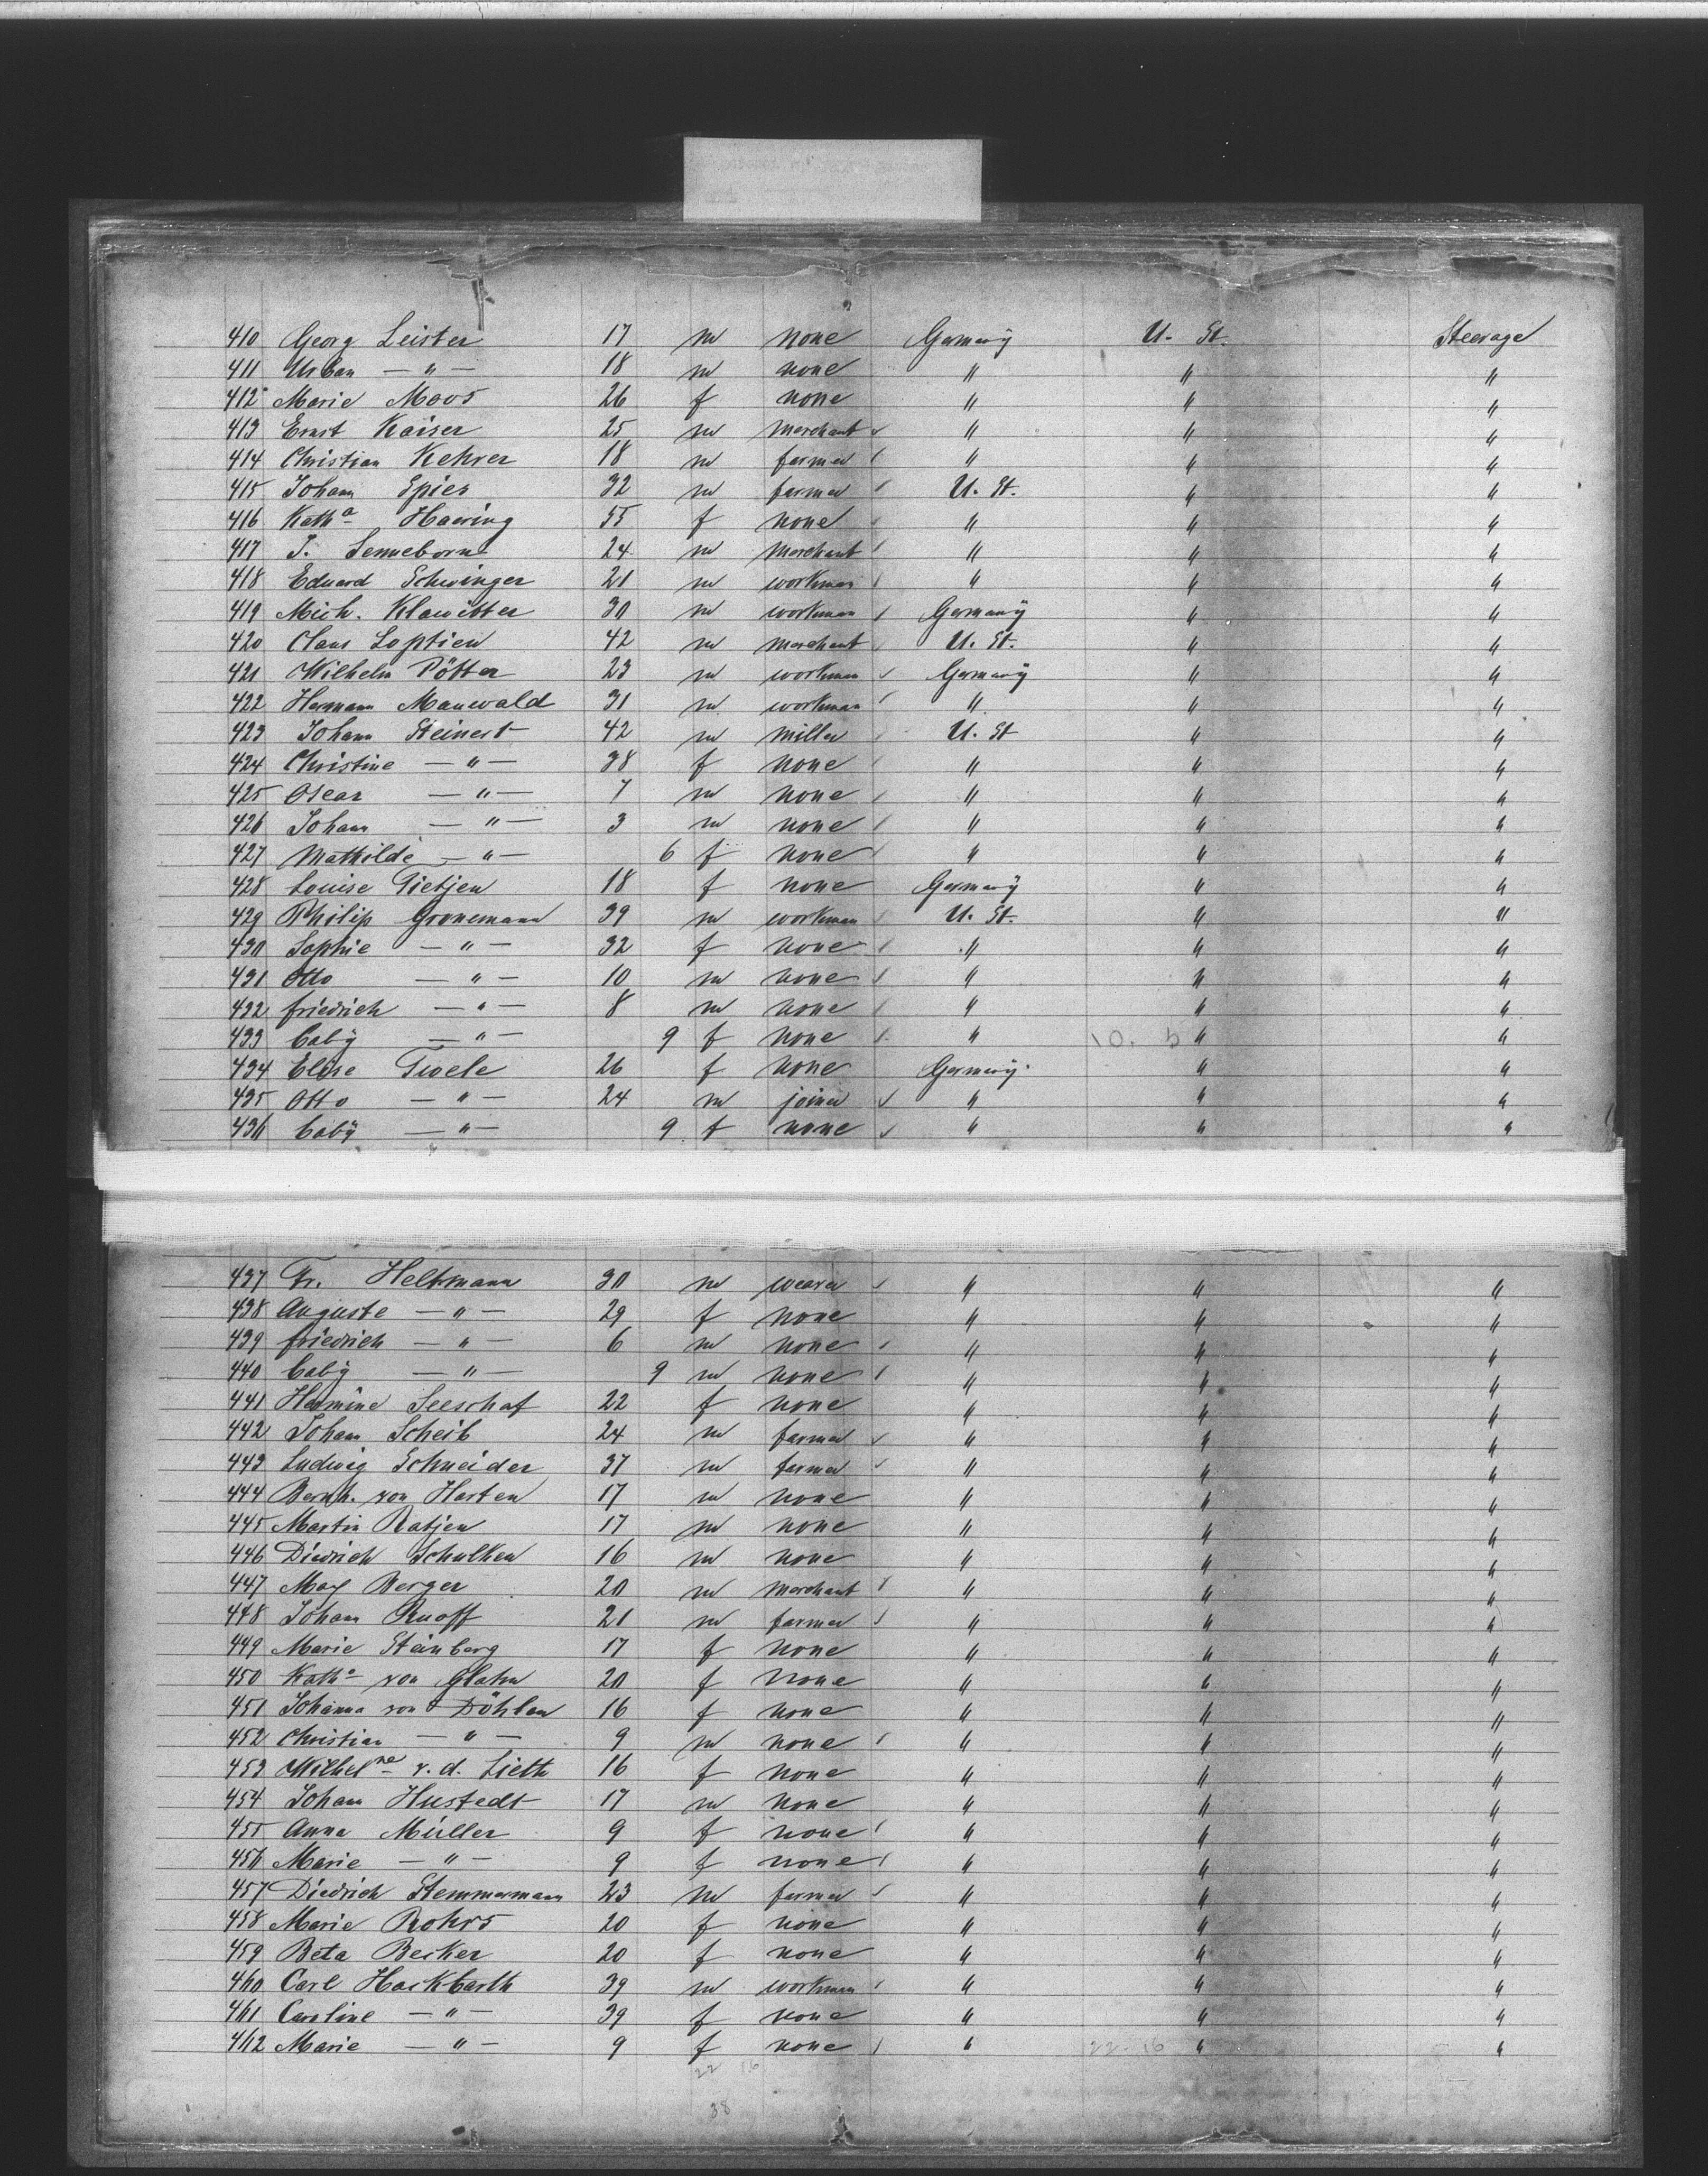 410 Georg Leister 17 m none Germany U. St. Steerage
411 Urban — " — 18 m none " " "
412 Marie Moos 26 f none " " "
413 Ernst Kaiser 25 m merchant " " "
414 Christian Kehrer 18 m farmer " " "
415 Johann Spier 32 m farmer U. St. " "
416 Kath^a Haering 55 f none " " "
417 J. Senneborn 24 m merchant " " "
418 Eduard Schwinger 21 m workman " " "
419 Mich. Klawitter 30 m workman Germany " "
420 Claus Loptien 42 m merchant U. St. " "
421 Wilhelm Pötter 23 m workman Germany " "
422 Hermann Manwald 31 m workman " " "
423 Johann Steinert 42 m miller U. St " "
424 Christine — " — 38 f none " " "
425 Oscar — " — 7 m none " " "
426 Johann — " — 3 m none " " "
427 Mathilde — " — 6 f none " " "
428 Louise Tietjen 18 f none Germany " "
429 Philip Gronemann 39 m workman U. St. " "
430 Sophie — " — 32 f none " " "
431 Otto — " — 10 m none " " "
432 friedrich — " — 8 m none " " "
433 baby — " — 9 f none " 10. 5 " "
434 Elise Twele 26 f none Germany " "
435 Otto — " — 24 m joiner " " "
436 baby — " — 9 f none " " "
437 Fr. Heltmann 30 m weaver " " "
438 Auguste — " — 29 f none " " "
439 friedrich — " 6 m none " " "
440 baby — " — 9 m none " " "
441 Hermine Seeschaf 22 f none " " "
442 Johann Scheib 24 m farmer " " "
443 Ludwig Schneider 37 m farmer " " "
444 Bernh. von Harten 17 m none " " "
445 Martin Ratjen 17 m none " " "
446 Diedrich Schulken 16 m none " " "
447 Max Berger 20 m merchant " " "
448 Johann Ruoff 21 m farmer " " "
449 Marie Steinberg 17 f none " " "
450 Kath^a von Glahn 20 f none " " "
451 Johanna von Döhlen 16 f none " " "
452 Christian — " — 9 m none " " "
453 Wilhel^ne v. d. Lieth 16 f none " " "
454 Johann Hustedt 17 m none " " "
455 Anna Müller 9 f none " " "
456 Marie — " — 9 f none " " "
457 Diedrich Stemmermann 23 m farmer " " "
458 Marie Rohrs 20 f none " " "
459 Beta Becker 20 f none " " "
460 Carl Hackbarth 39 m workman " " "
461 Caroline — " — 39 f none " " "
462 Marie — " — 9 f none " 22-16 " "
22 16
38